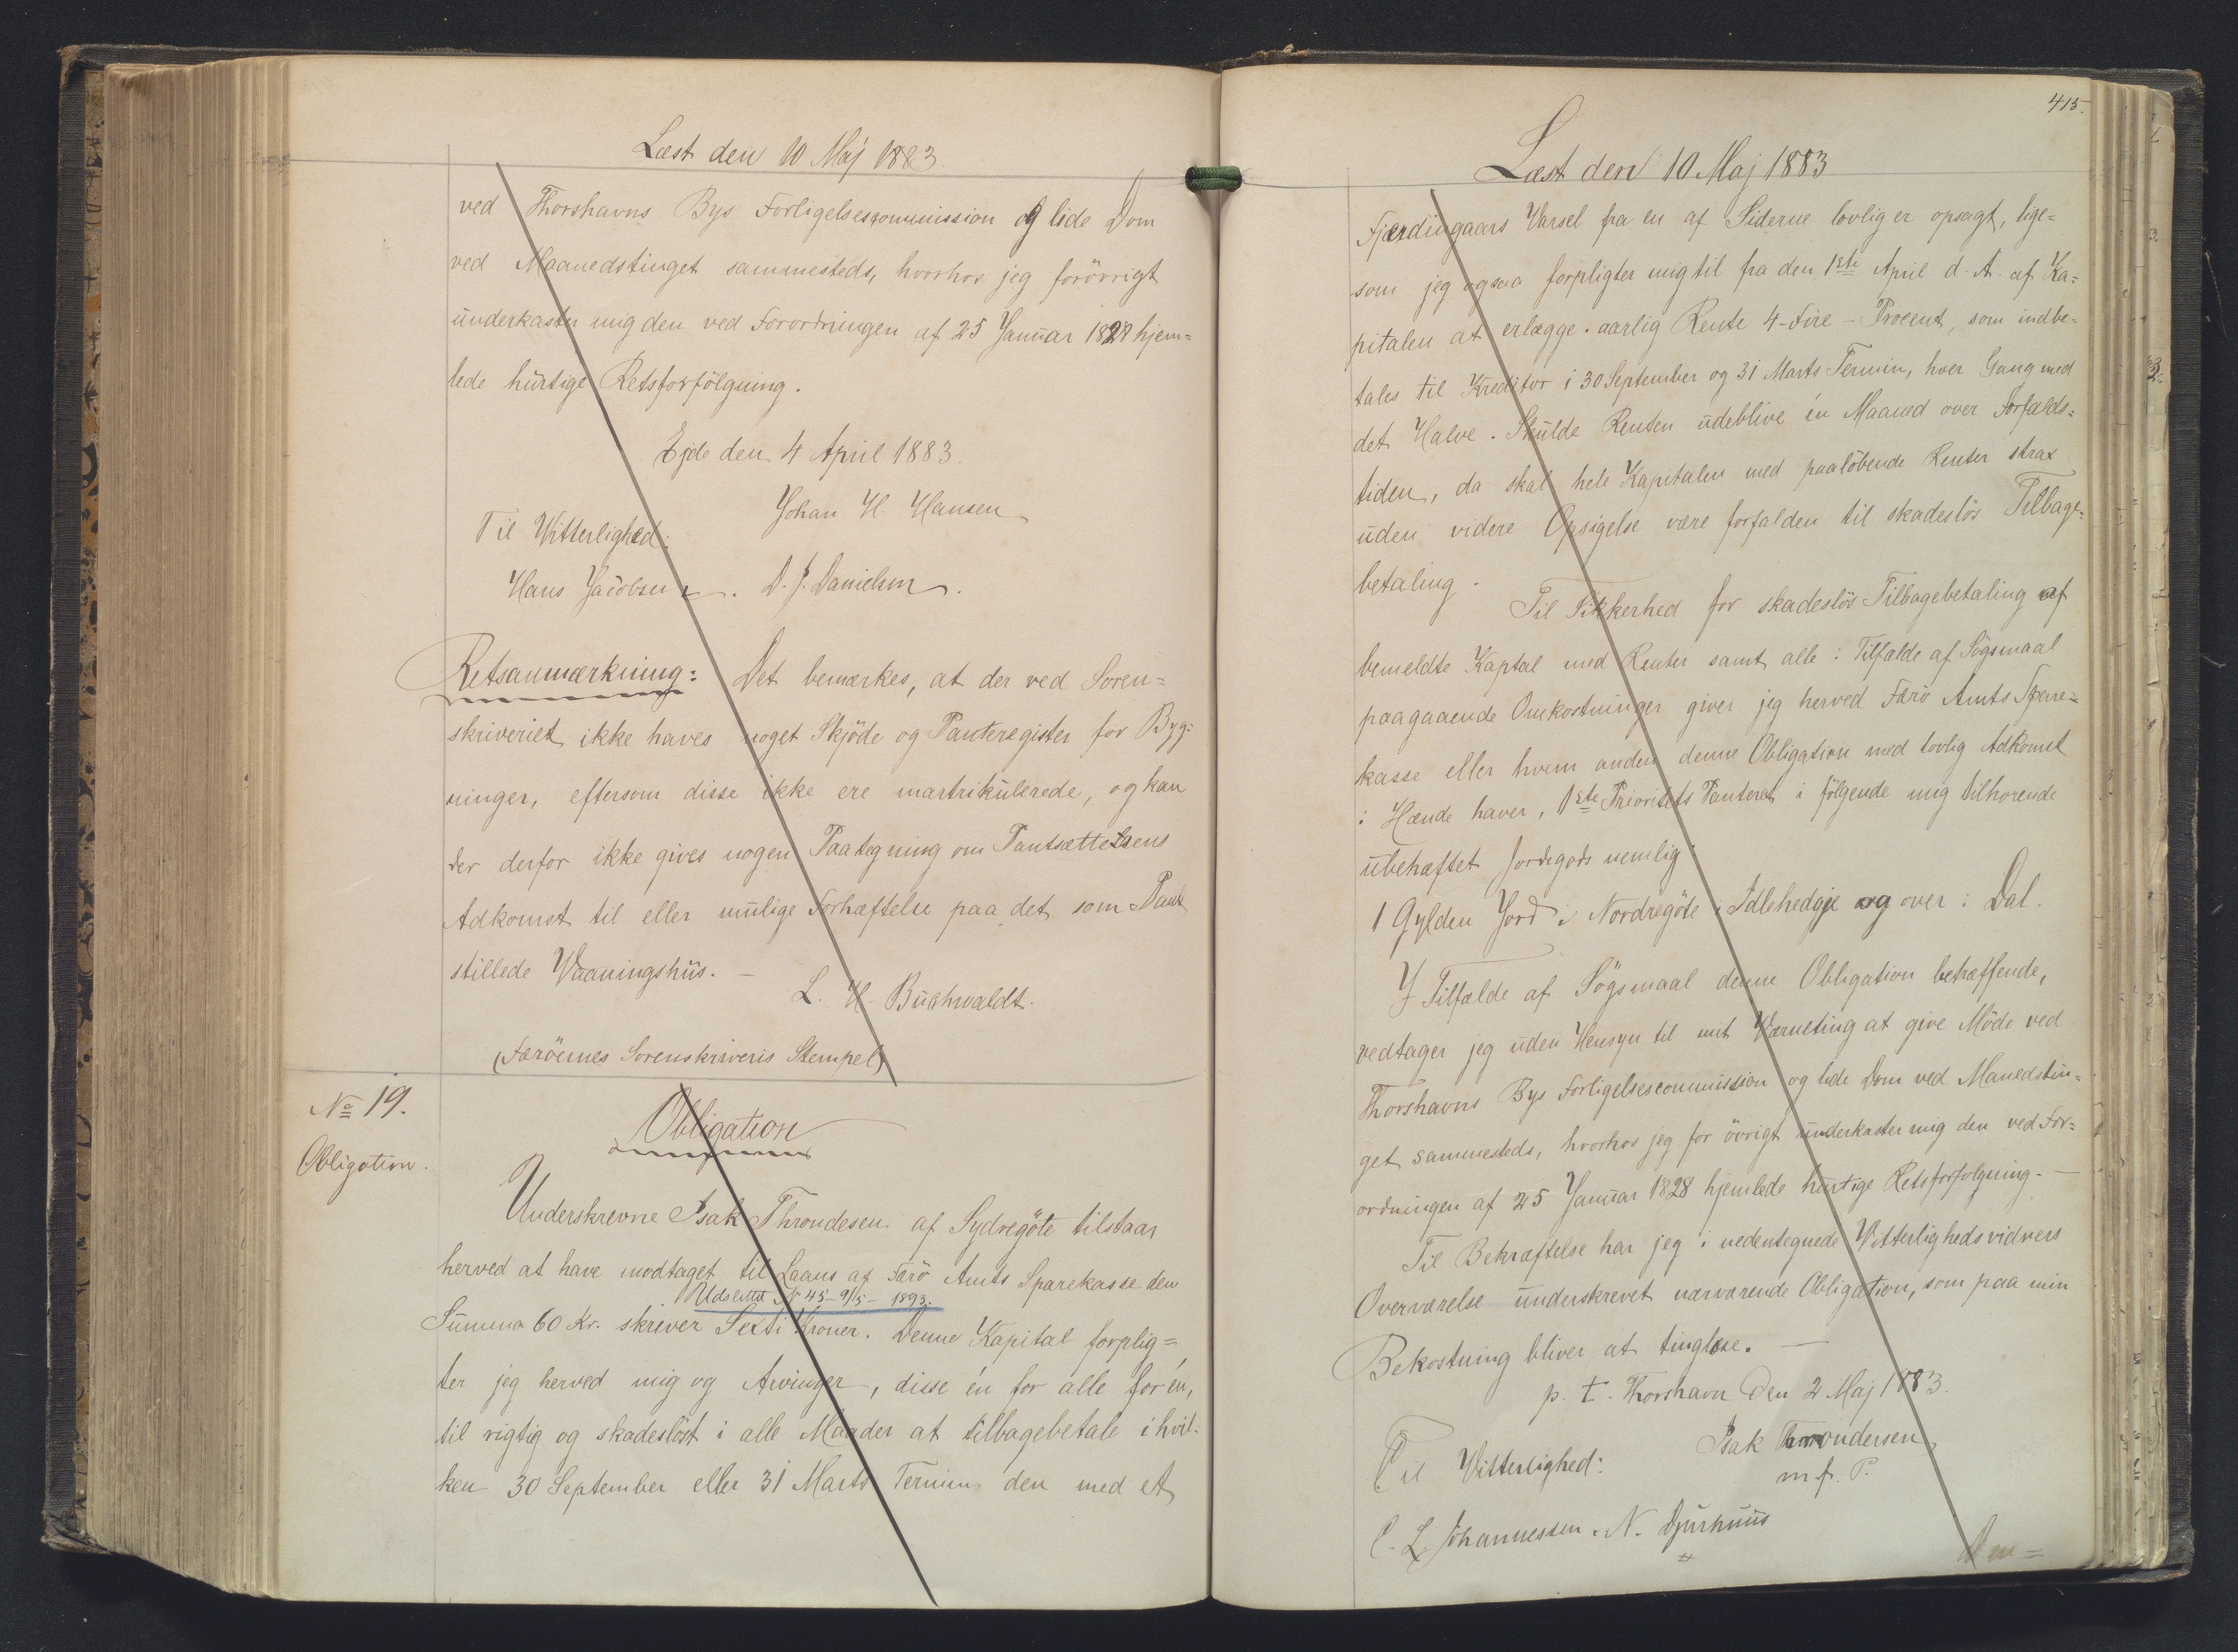 Læst den 10 Maj 1883.
ved Thorshavns Bys Forligelsescommission og lide Dom
ved Maanedstinget sammesteds, hvorhos jeg forövrigt
underkaster mig den ved Forordningen af 25 Januar 1828 hjem=
lede hurtige Retsforfölgning.
Ejde den 4 April 1883.
Johan H. Hansen
Til Vitterlighed:
Hans Jacobsen. D. J. Danielsen.
Retsanmærkning: Det bemærkes, at der ved Soren=
skriveriet ikke haves noget Skjöde og Panteregister for Byg=
ninger, eftersom disse ikke ere martrikulerede, og kan
der derfor ikke gives nogen Paategning om Pantsættelsens
Adkomst til eller mulige Forhæftelse paa det som Pant
stillede Vaaningshus. —
L. H. Buchwaldt.
(Færöernes Sorenskriveris Stempel)
No 19.
Obligation.
Obligation
Underskrevne Isak Throndesen af Sydregöte tilstaar
herved at have modtaget til Laans af Færö Amts Sparekasse den
Udslettet No 45 - 9/5 - 1893.
Summa 60 Kr. skriver Sexti Kroner. Denne Kapital forplig=
ter jeg herved mig og Arvinger, disse én for alle for én,
til rigtig og skadeslöst i alle Maader at tilbagebetale i hvil-
ken 30 September eller 31 Marts Termin den med et
415.
Læst den 10 Maj 1883
Fjerdingaars Varsel fra en af Siderne lovlig er opsagt, lige=
som jeg ogsaa forpligter mig til fra den 1ste April d. A. af Ka=
pitalen at erlægge aarlig Rente 4 - Fire - Procent, som indbe-
tales til Kreditor i 30 September og 31 Marts Termin, hver Gang med
det Halve. Skulde Renten udeblive én Maaned over Forfalds=
tiden, da skal hele Kapitalen med paalöbende Renter strax
uden videre Opsigelse være forfalden til skadeslös Tilbage=
betaling.
Til Sikkerhed for skadeslös Tilbagebetaling af
bemeldte Kaptal med Renter samt alle i Tilfælde af Sögsmaal
paagaaende Omkostninger giver jeg herved Færö Amts Spare=
kasse eller hvem anden denne Obligation med lovlig Adkomst
i Hænde haver, 1ste Prioritets Panteret i fölgende mig tilhorende
ubehæftet Jordegods nemlig:
1 Gylden Jord i Nordregöte i Idlehedgje og over i Dal.
I Tilfælde af Sögsmaal denne Obligation betræffende,
vedtager jeg uden Hensyn til mit Værneting at give Möde ved
Thorshavns Bys Forligelsescommission og lide Dom ved Manedstin=
get sammesteds, hvorhos jeg for övrigt underkaster mig den ved For=
ordningen af 25 Januar 1828 hjemlede hurtige Retsforfolgning. —
Til Bekræftelse har jeg i nedentegnede Vitterlighedsvidners
Overværelse underskrevet nærværende Obligation, som paa min
Bekostning bliver at tinglæse. —
p. t. Thorshavn den 2 Maj 1883.
Isak Throndersen
m. f. P.
Til Vitterlighed:
C. L. Johannessen. N. Djurhuus
Den=